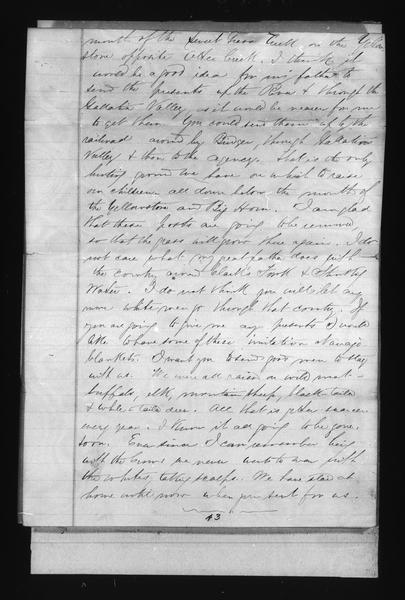 month of the Sweet Grass Creek on the Yellow
stone opposite Otter Creek. I think it
would be a good idea for my father to
send the presents up the River & through the
Gallatin Valley, as it would be nearer for me
to get them. You could send them all by the
railroad around by Bridger, through Gallatin
Valley & then to the agency. That is the only
hunting ground we have on which to raise
our children all down below the mouth of
the Yellowstone and Big Horn. I am glad
that these posts are going to be removed
so that the grass will grow there again. I do
not care what my great father does with
the country around Clark's Fork & Stinking
Water. I do not think you will let any
more white men go through that country. If
you are going to give me any presents I would
like to have some of these imitation Navajo
blankets. I want you to send good men to stay
with us. We were all raised on wild meat—
buffalo, elk, mountain sheep, black-tailed
& white-tailed deer. All that is getting scarcer
every year. I know it is all going to be gone
soon. Ever since I can remember being
with the Crows we never went to war with
the whites, taking scalps. We have staid at
home until now when you sent for us.
43